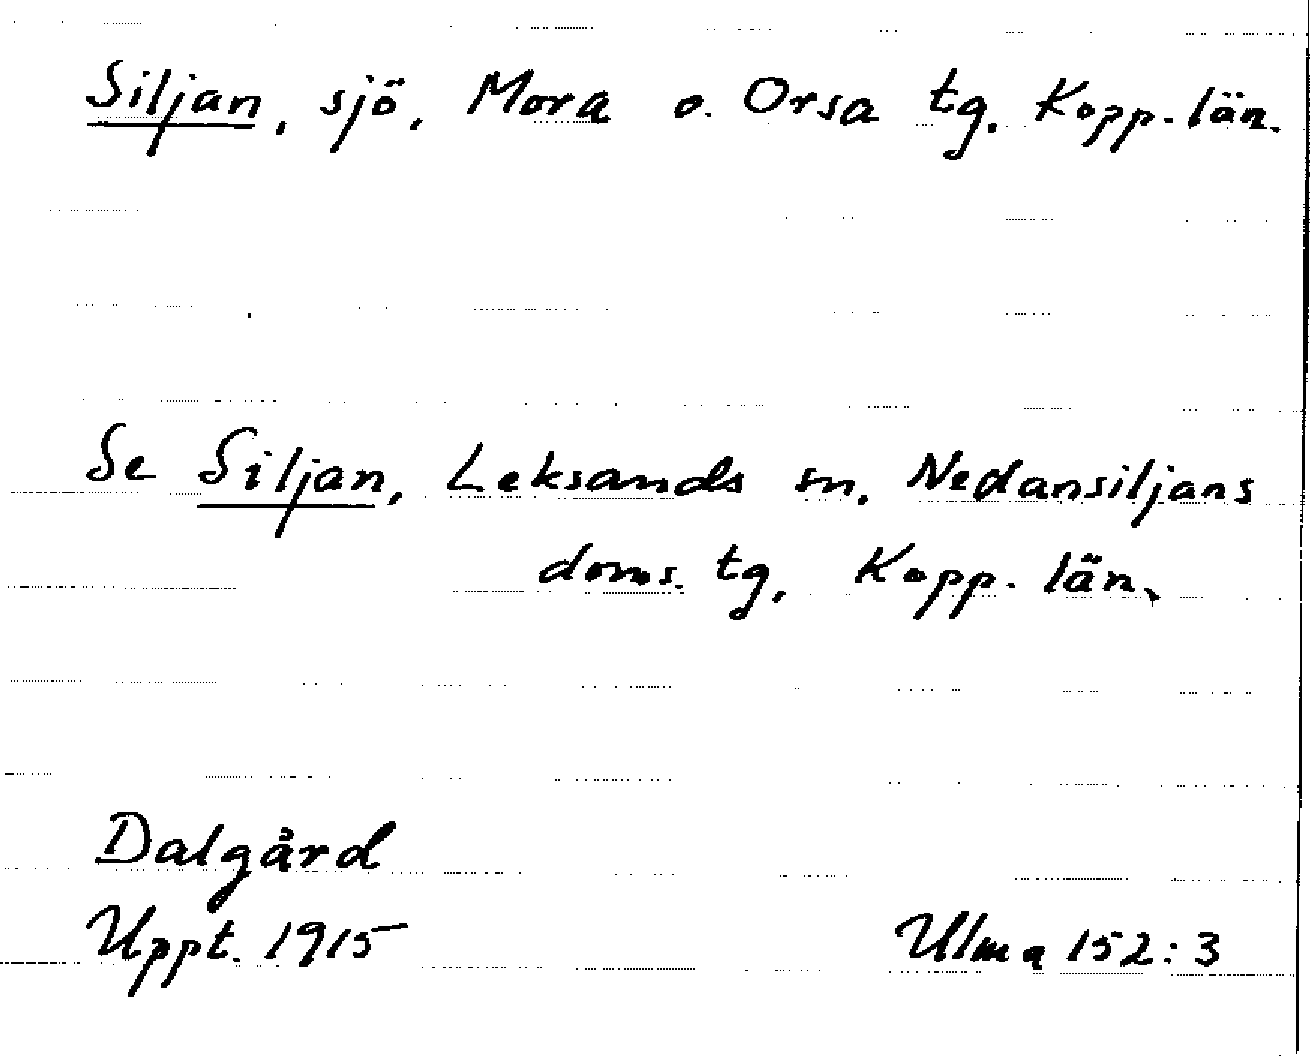 Siljan, sjö, Mora o. Orsa tg. Kopp. län.
Se Siljan, Leksands sn, Nedansiljans
doms. tg, Kopp. län.
Dalgård
Uppt. 1915 Ulma 152:3